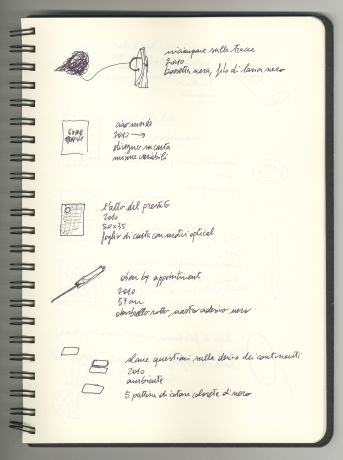 inciampare sulle tracce
2010
borsetta nera, filo di lana nero
ciao mondo
2010 →
disegno su carta
misure variabili
l'atto del prestito
2010
50x35
foglio di carta con motivi optical
open by appointment
2010
57 cm
ombrello rotto, nastro adesivo nero
alcune questioni sulla deriva dei continenti
2010
ambiente
5 pattine di cotone colorate di nero